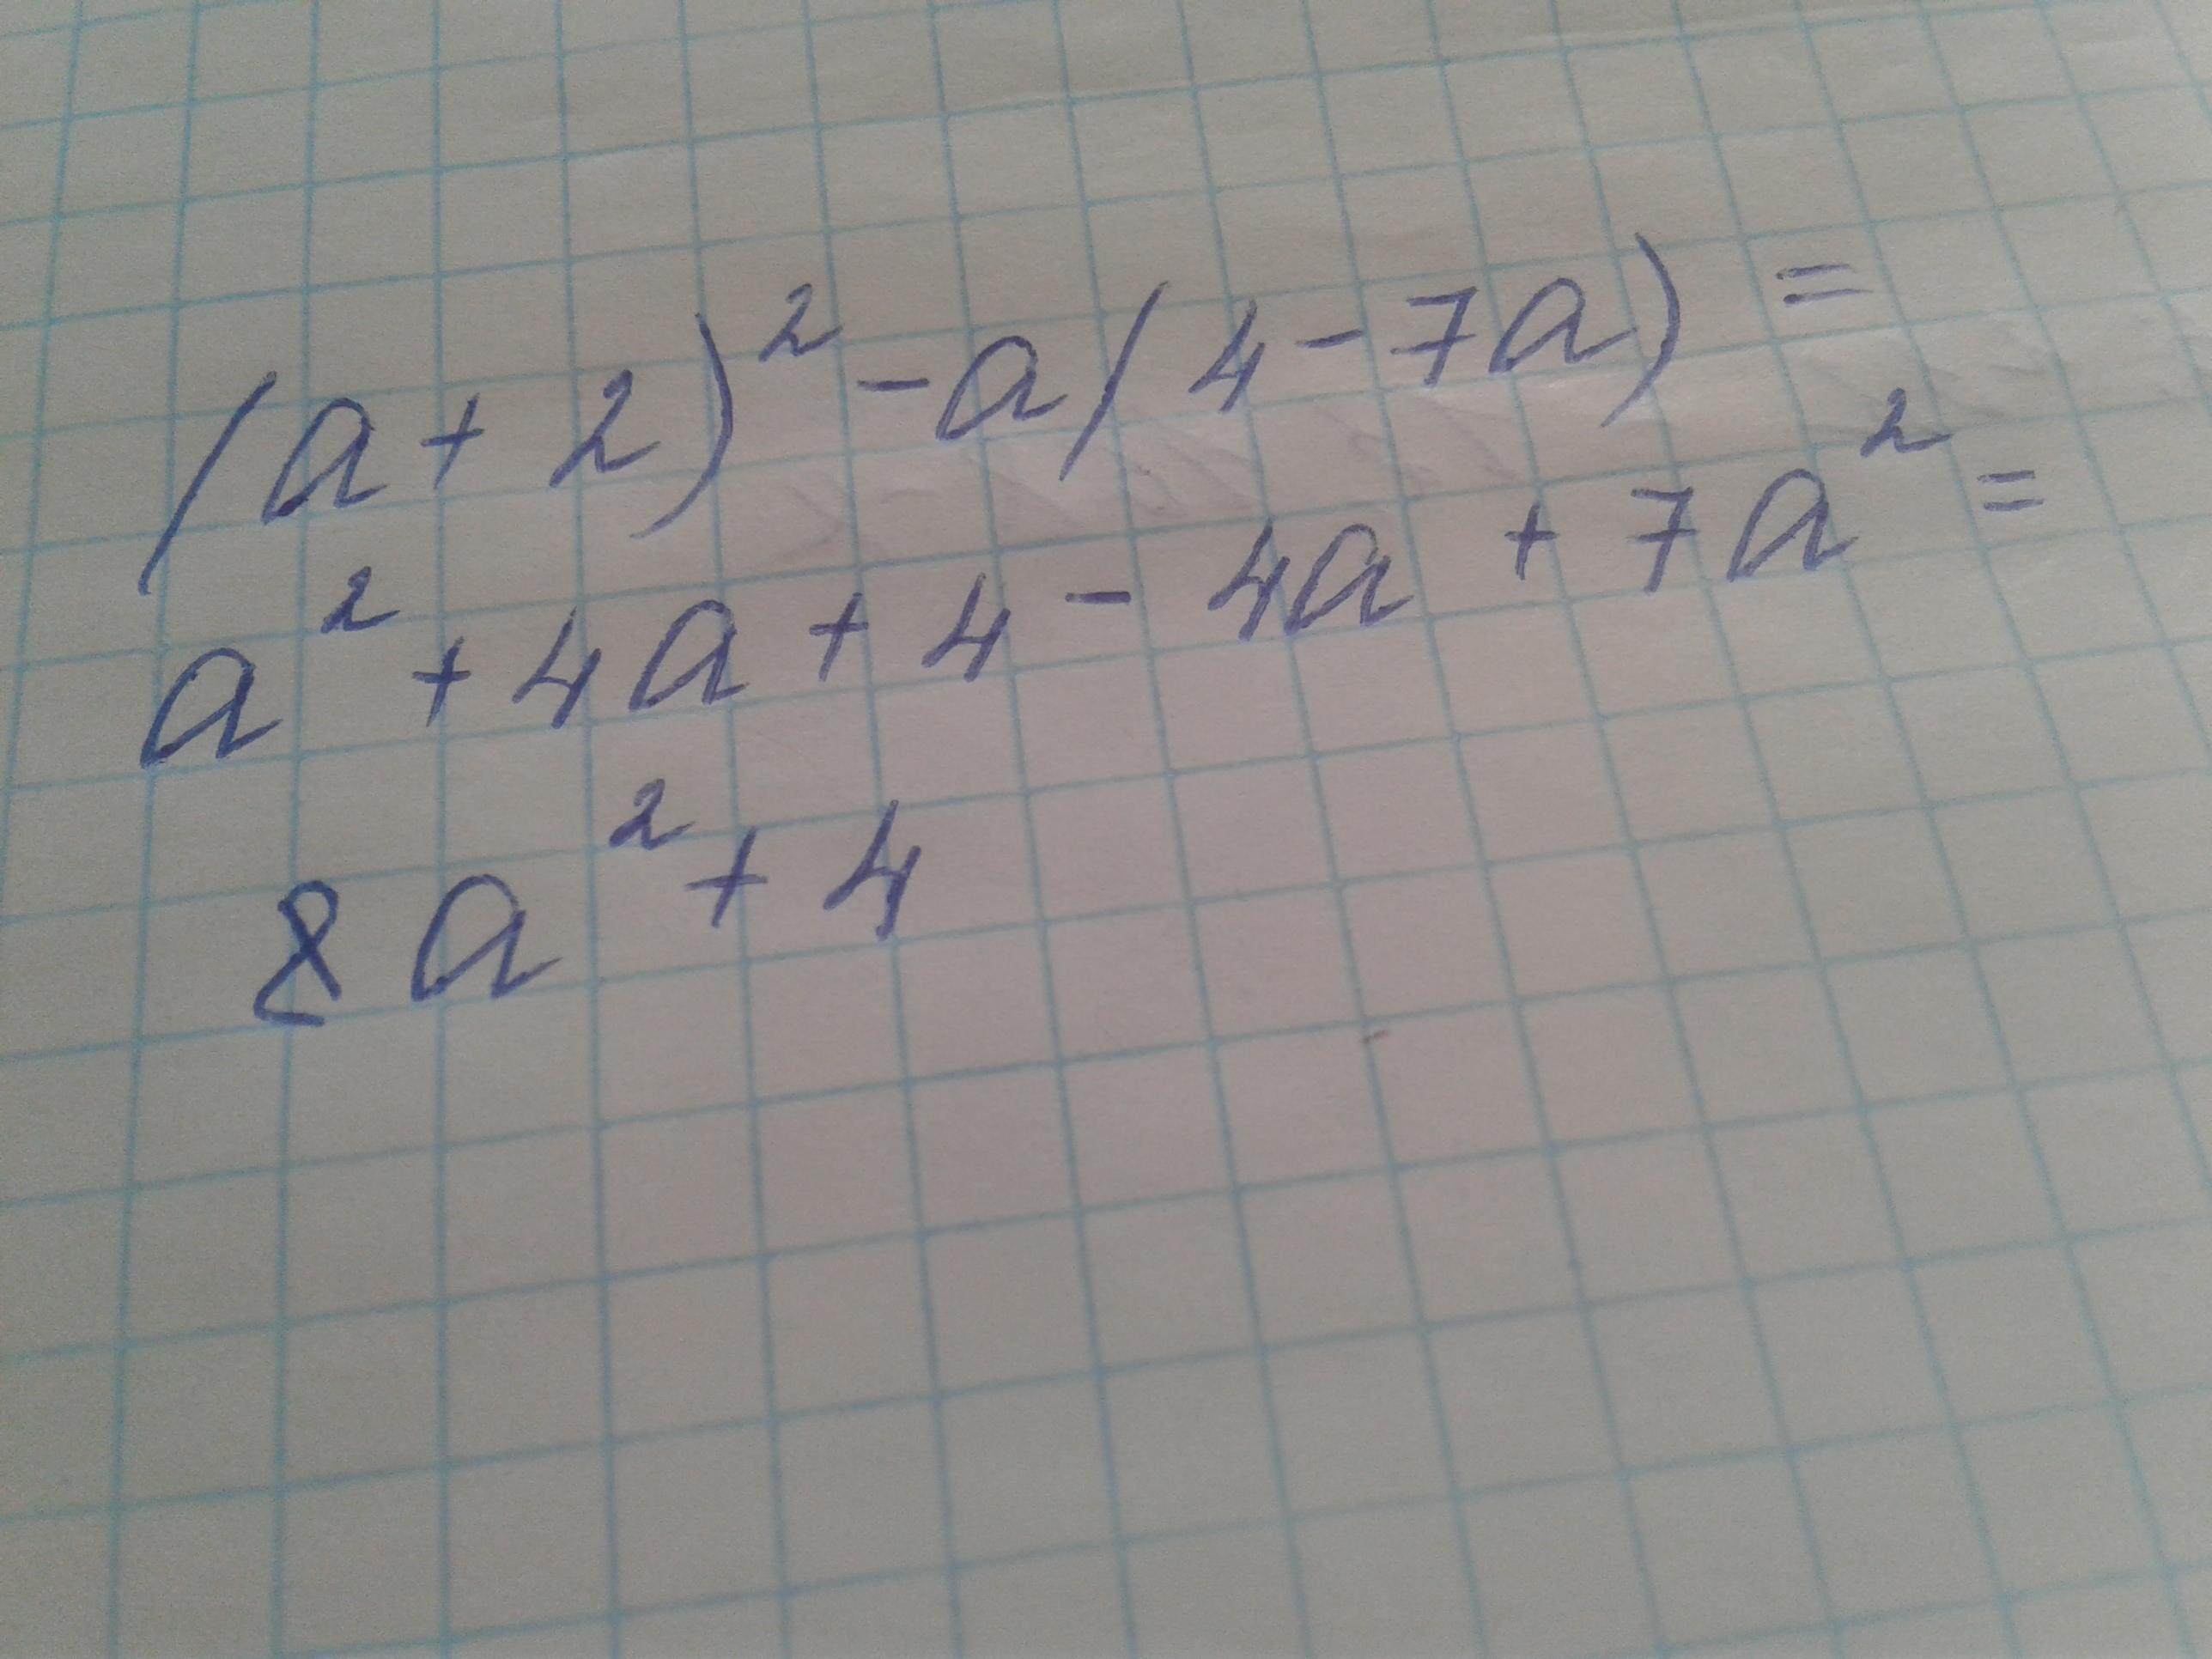 (a+2)² -a(4-7a) =
a² +4a+4- 4a + 7a² =
8a² +4